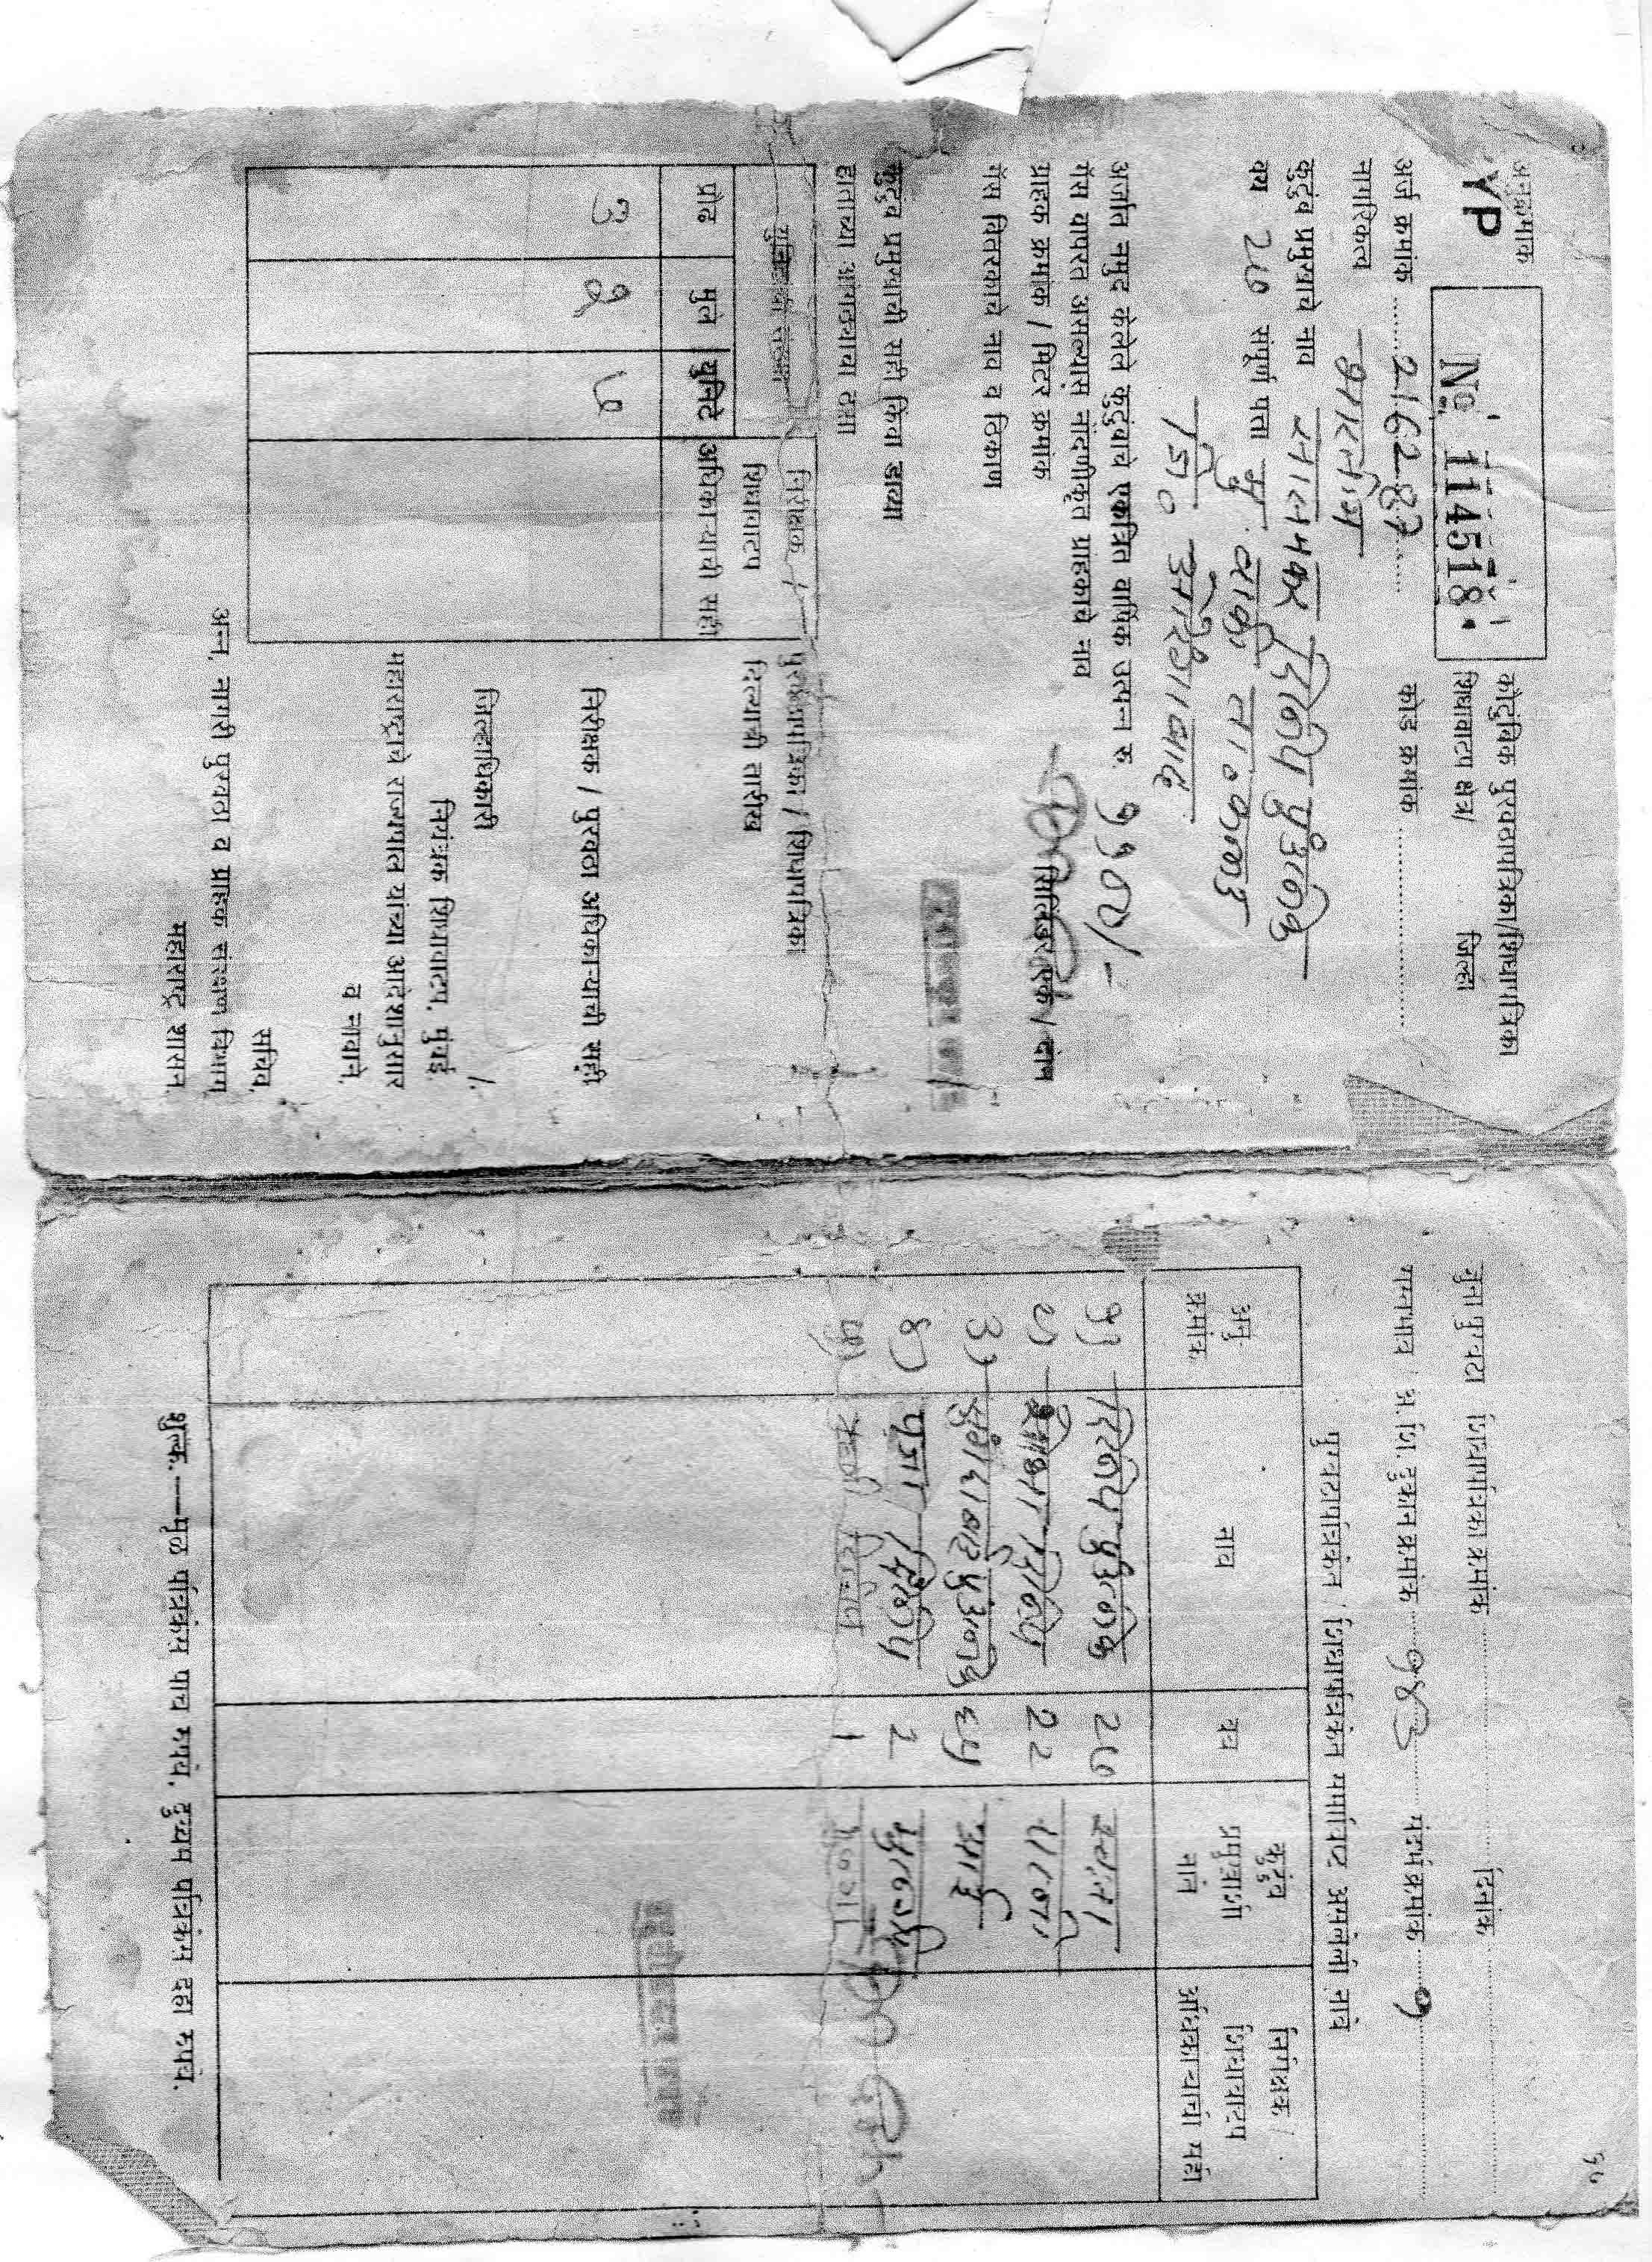 अनुक्रमांक
YP
No 114518
कौटुंबिक पुरवठापत्रिका/शिधापत्रिका
शिधावाटप क्षेत्र/ जिल्हा
अर्ज क्रमांक 216287 कोड क्रमांक
नागरिकत्व भारतीय
कुटुंब प्रमुखाचे नाव दिलीप पुंडलिक
वय 27 संपूर्ण पत्ता मु. ता. कन्नड
जि० औरंगाबाद
अर्जात नमुद केलेले कुटुंबाचे एकत्रित वार्षिक उत्पन्न रु.
गॅस वापरत असल्यास नोंदणीकृत ग्राहकाचे नाव
ग्राहक क्रमांक / मिटर क्रमांक सिलिंडर एक / दोन
गॅस वितरकाचे नाव व ठिकाण
कुटुंब प्रमुखाची सही किंवा डाव्या
हाताच्या अंगठ्याचा ठसा
युनिटची संख्या
निरीक्षक /
शिधावाटप
अधिकाऱ्याची सही
प्रौढ मुले युनिट
३ २
पुरवठापत्रिका / शिधापत्रिका
दिल्याची तारीख
निरीक्षक / पुरवठा अधिकाऱ्याची सही
जिल्हाधिकारी
नियंत्रक शिधावाटप, मुंबई.
महाराष्ट्राचे राज्यपाल यांच्या आदेशानुसार
व नावाने,
सचिव,
अन्न, नागरी पुरवठा व ग्राहक संरक्षण विभाग
महाराष्ट्र शासन.
जुना पुरवठा शिधापत्रिका क्रमांक दिनांक
रास्तभाव / अ.शि. दुकान क्रमांक १४३ संदर्भ क्रमांक १
पुरवठापत्रिकेत / शिधापत्रिकेत समाविष्ट असलेली नावे
अनु क्रमांक
नाव
वय
कुटुंब प्रमुखाशी नाते
निरीक्षक / शिधावाटप अधिकाऱ्याची सही
१) दिलीप पुंडलिक 27 स्वतः
२) दिलीप 22 पत्नी
३) पुंडलिक ६५ आई
४) पूजा दिलीप 2 मुलगी
५) दिलीप 1
शुल्क.—मूळ पत्रिकेस पाच रुपये, दुय्यम पत्रिकेस दहा रुपये.